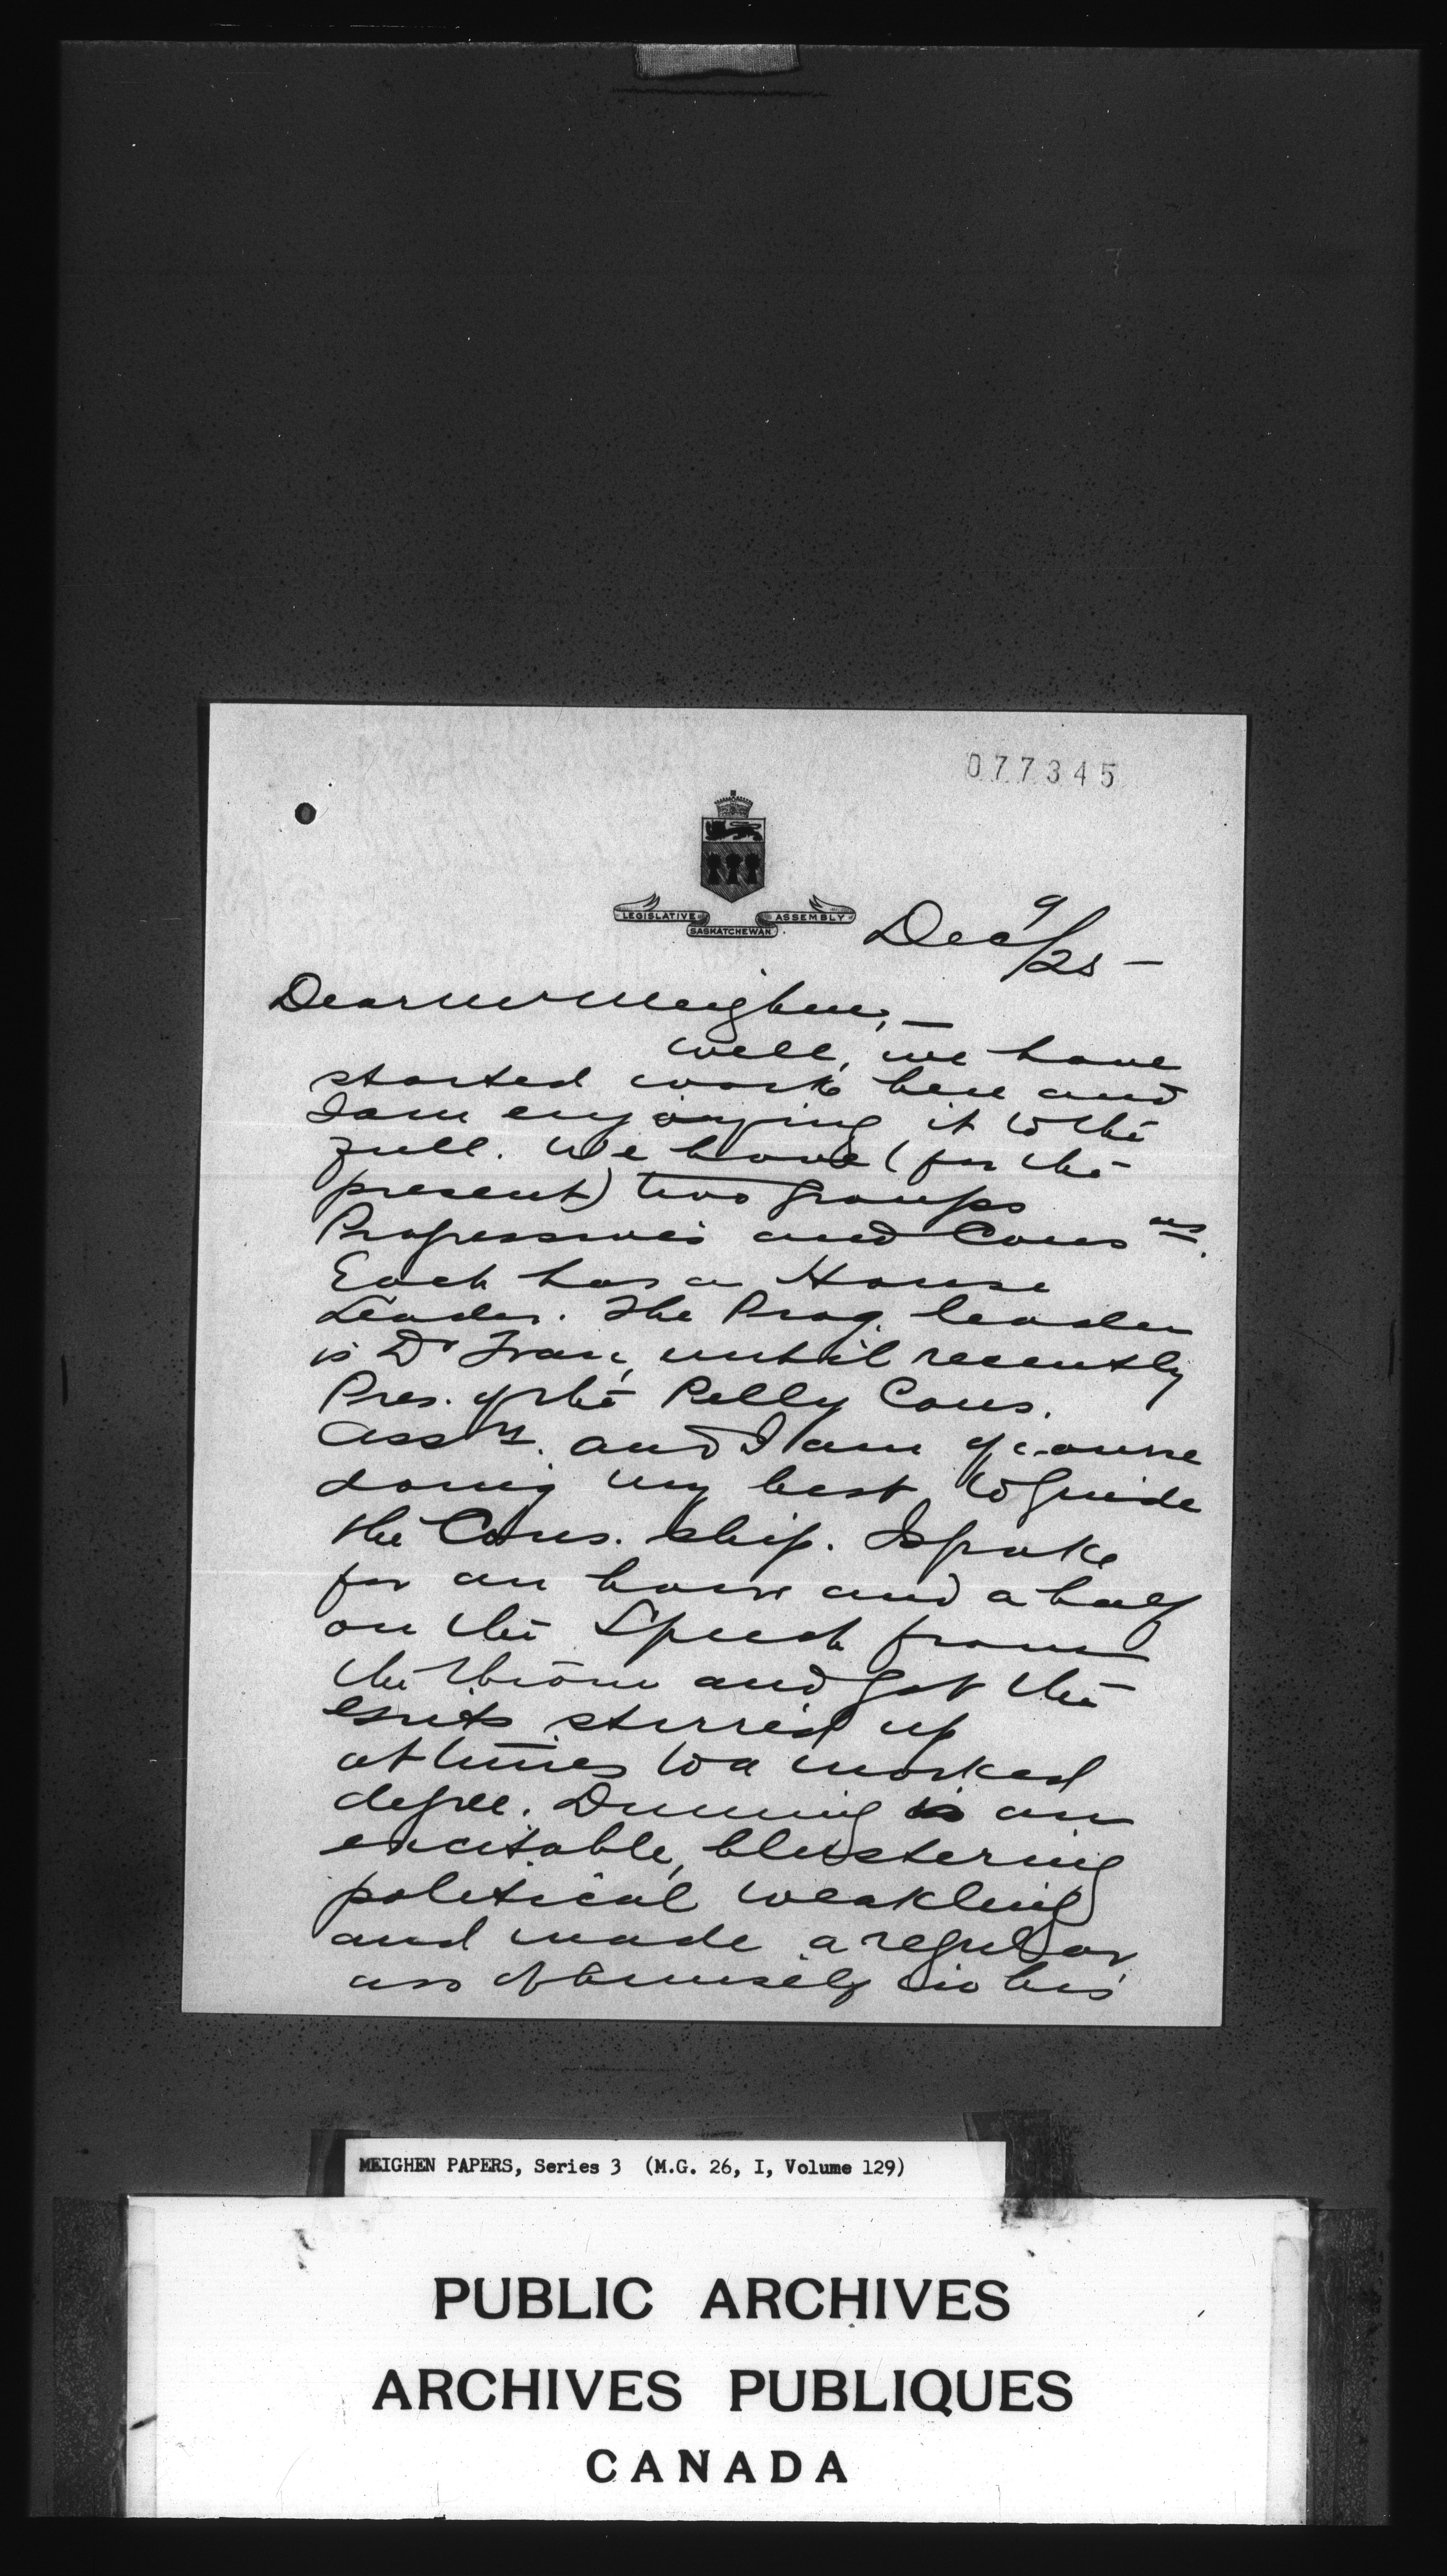 077345
LEGISLATIVE ASSEMBLY
SASKATCHEWAN
Dec 9/25 —
Dear Mr Meighen, —
Well, we have
started work here and
I am enjoying it to the
full. We have (for the
present) two groups
Progressives and Cons ves.
Each has a House
Leader. The Prog. leader
is Dr Tran, until recently
Pres. of the Pelly Cons.
Assn. and I am of course
doing my best to guide
the Cons. ship. I spoke
for an hour and a half
on the Speech from
the throne and got the
Grits stirred up
at times to a marked
degree. Dunning is an
excitable, blustering
political weakling
and made a regular
ass of himself in his
MEIGHEN PAPERS, Series 3 (M.G. 26, I, Volume 129)
PUBLIC ARCHIVES
ARCHIVES PUBLIQUES
CANADA